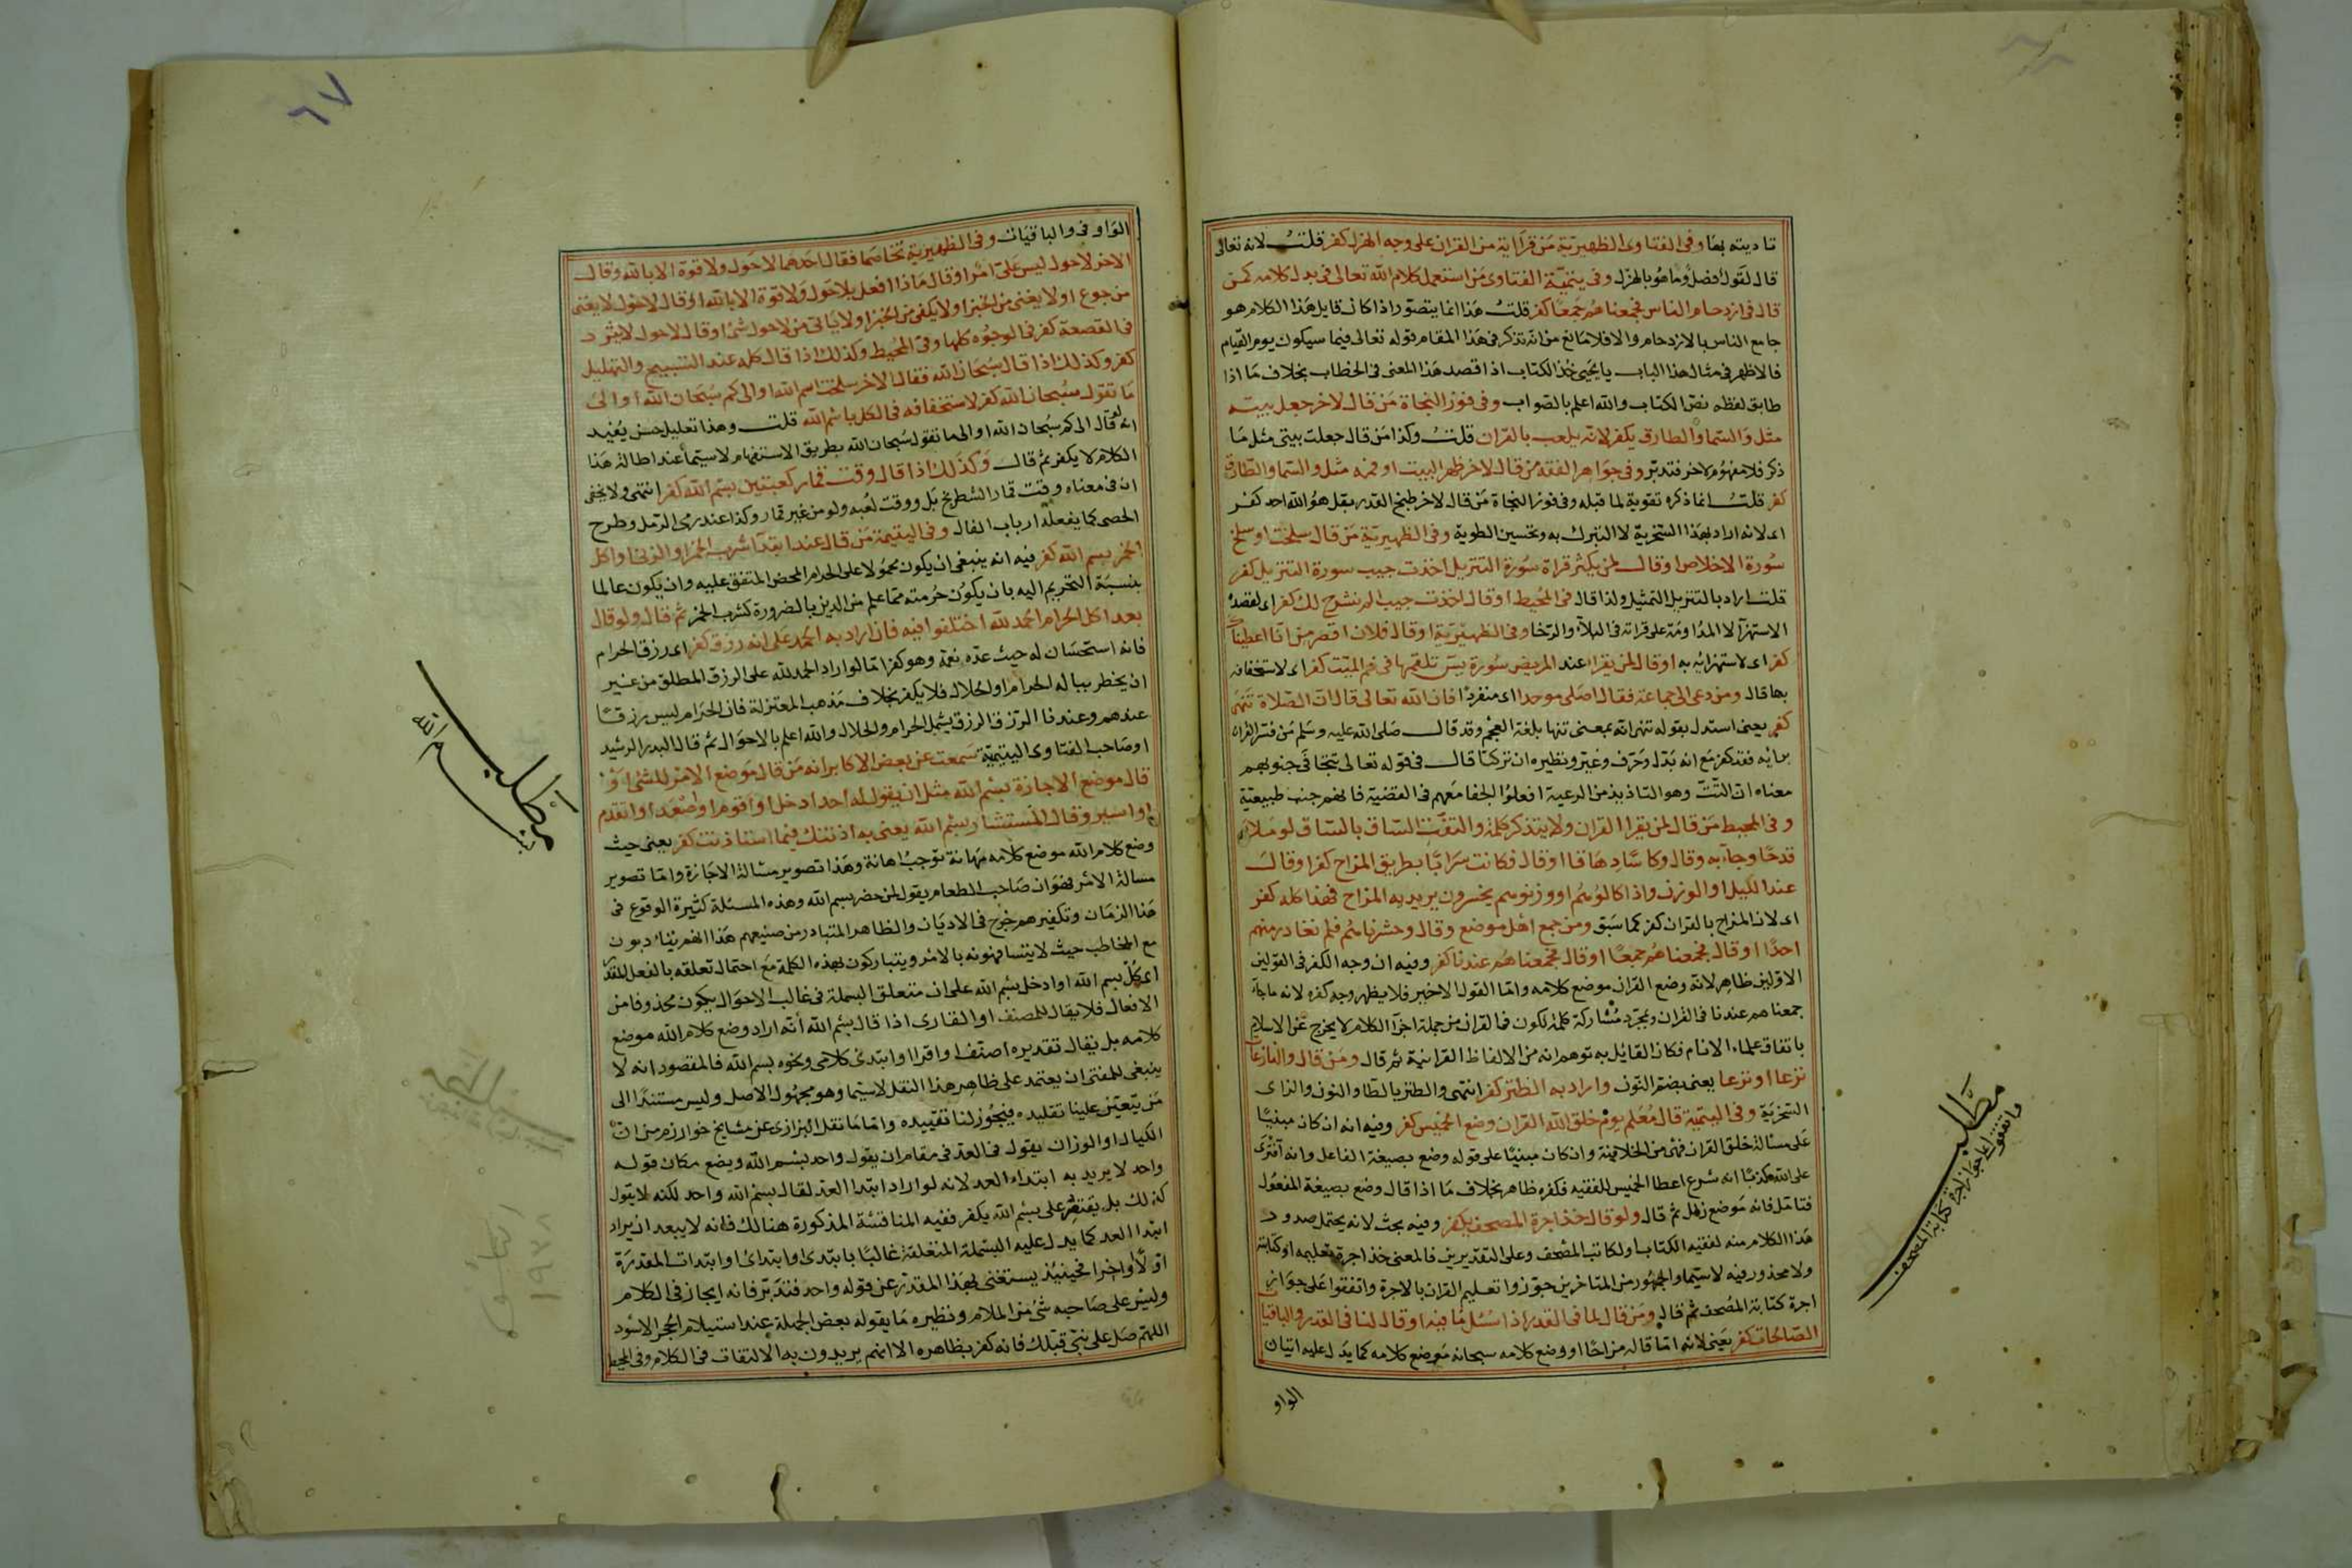 تاديته بها وفى الفتاوى الظهيرية من قرا اية من القران على وجه الهزل كفر قلت لانه تعالى
قال لقول فصل وما هو بالهزل وفى يتيمة الفتاوى من استعمل كلام الله تعالى فى بدل كلامه كمن
قال فى ازدحام الناس فجمعناهم جمعا كفر قلت هذا انما يتصور اذا كان قايل هذا الكلام هو
جامع الناس بالازدحام والا فلا مانع من انه تذكر فى هذا المقام قوله تعالى فيما سيكون يوم القيام
فالاظهر فى مثال هذا الباب يا يحيى خذ الكتاب اذا قصد هذا المعنى فى الخطاب بخلاف ما اذا
طابق لفظه نص الكتاب والله اعلم بالصواب وفى فوز النجاة من قال لاخر جعل بيته
مثل والسما والطارق يكفر لانه يلعب بالقران قلت وكذا من قال جعلت بيتى مثل ما
ذكر فلا مفهوم لاخر فتدبر وفى جواهر الفقه من قال لاخر ظهر البيت او فمه مثل والسما والطارق
كفر قلت انما ذكره تقوية لما قبله وفى فوز النجاة من قال لاخر طبخ القدر بقل هو الله احد كفر
اى لانه اراد بهذا السخرية لا التبرك به وتحسين الطوية وفى الظهيرية من قال سلخت او سلخ
سورة الاخلاص او قال لمن يكثر قراة سورة التنزيل اخذت جيب سورة التنزيل كفر
قلت اراد بالتنزيل التمثيل ولذا قال فى المحيط او قال اخذت جيب الم نشرح لك كفر اى لقصده
الاستهزا لا المداومة على قراته فى البلاء والرخا وفى الظهيرية او قال فلان اقصر من انا اعطيناك
كفر اى لاستهزائه به او قال لمن يقرا عند المريض سورة يس تلقمها فى فم الميت كفر اى لاستخفافه
بها قال ومن دعى الى جماعة فقال اصلى موحدا اى منفردا فان الله تعالى قال ان الصلاة تنهى
كفر يعنى استدل بقوله تنهى انه بمعنى تنها بلغة العجم وقد قال صلى الله عليه وسلم من فسر القران
برايه فقد كفر مع انه بدل وحرف وغير ونظيره ان تركيا قال فى قوله تعالى تتجافى جنوبهم
وفى المحيط من قال لمن يقرا القران ولا يتذكر كلمة والتفت الساق بالساق او ملا
قدحا وجاء به وقال وكاسا دهاقا او قال فكانت سرابا بطريق المزاح كفر او قال
عند الكيل او الوزن واذا كالوهم او وزنوهم يخسرون يريد به المزاح فهذا كله كفر
اى لان المزاح بالقران كفر كما سبق ومن جمع اهل موضع وقال وحشرناهم فلم نغادر منهم
احدا او قال فجمعناهم جمعا او قال فجمعناهم عندنا كفر وفيه ان وجه الكفر فى القولين
الاولين ظاهر لانه وضع القران موضع كلامه واما القول الاخير فلا يظهر وجه كفره لانه ما جاء
جمعناهم عندنا فى القران ومجرد مشاركة كلمة تكون فى القران من جملة اجزآ الكلام لا يخرج عن الاسلام
باتفاق علماء الانام فكان القائل به توهم انه من الالفاظ القرانية ثم قال ومن قال والنازعات
نزعا او نزعا يعنى بضم النون واراد به الطنز كفر انتهى والطنز بالطا والنون والزاى
السخرية وفى اليتيمة قال معلم يوم خلق الله القران وضع الخميس كفر وفيه انه ان كان مبنيا
على مسالة خلق القران فهى من الخلافية وان كان مبنيا على قوله وضع بصيغة الفاعل وانه افترى
على الله كذبا انه شرع اعطا الخميس للفقيه فكفره ظاهر بخلاف ما اذا قال وضع بصيغة المفعول
فتامل فانه موضع زلل ثم قال ولو قال خذ اجرة المصحف يكفر وفيه بحث لانه يحتمل صدور
هذا الكلام منه لفقيه الكتاب او لكاتب المصحف وعلى التقديرين فالمعنى خذ اجرة تعليمه او كتابته
ولا محذور فيه لاسيما والجمهور من المتاخرين جوزوا تعليم القران بالاجرة واتفقوا على جواز
اجرة كتابة المصحف ثم قال ومن قال لما فى القدر اذا سئل ما فيه او قال لنا فى القدر والباقيات
الصالحات كفر يعنى لانه اما قاله مزاحا او وضع كلامه سبحانه موضع كلامه كما يدل عليه اتيان
الواو
مطلب
واتفقوا على جواز اجرة كتابة المصحف
٦٧
الواو فى والباقيات وفى الظهيرية تخاصما فقال احدهما لا حول ولا قوة الا بالله وقال
الاخر لا حول ليس على امر او قال ماذا افعل بلا حول ولا قوة الا بالله او قال لا حول لا يغنى
من جوع او لا يغنى من الخبز او لا يكفى من الخبز او لا ياتى من لا حول شئ او قال لا حول لا يثرد
فى القصعة كفر فى الوجوه كلها وفى المحيط وكذلك اذا قال كله عند التسبيح والتهليل
كفر وكذلك اذا قال سبحان الله فقال الاخر سلخت اسم الله او الى كم سبحان الله او الى
ما تقول سبحان الله كفر لاستخفافه فى الكل باسم الله قلت وهذا تعليل حسن يفيد
انه لو قال الى كم سبحان الله او الى ما تقول سبحان الله بطريق الاستفهام لاسيما عند اطالة هذا
الكلام لا يكفر ثم قال وكذلك اذا قال وقت قمار كعبتين بسم الله كفر انتهى ولا يخفى
ان فى معناه وقت قمار الشطرنج بل ووقت لعبه ولو من غير قمار وكذا عند رمى الرمل وطرح
الحصى كما يفعله ارباب الفال وفى اليتيمة من قال عند ابتدا شرب الخمر او الزنى او اكل
الخمر بسم الله كفر فيه انه ينبغى ان يكون محمولا على الحرام المحض المتفق عليه وان يكون عالما
بنسبة التحريم اليه بان يكون حرمته مما علم من الدين بالضرورة كشرب الخمر ثم قال ولو قال
بعد اكل الحرام الحمد لله اختلفوا فيه فان اراد به الحمد على انه رزق كفر اى رزق الحرام
فانه استحسان له حيث عده نعمة وهو كفر اما لو اراد الحمد لله على الرزق المطلق من غير
ان يخطر بباله الحرام او الحلال فلا يكفر بخلاف مذهب المعتزلة فان الحرام ليس برزق
عندهم وعندنا الرزق يشمل الحرام والحلال والله اعلم بالاحوال ثم قال البدر الرشيد
او صاحب الفتاوى اليتيمة سمعت عن بعض الاكابر انه من قال موضع الامر للشئ او
قال موضع الاجازة بسم الله مثل ان يقول له احد ادخل او اقوم او اصعد او اتقدم
او اسير وقال المستشار بسم الله يعنى به اذنتك فيما استاذنت كفر يعنى حيث
وضع كلام الله موضع كلامه مهانة توجب اهانة وهذا تصوير مسالة الاجازة واما تصوير
مسالة الامر فهو ان صاحب الطعام يقول لمن حضر بسم الله وهذه المسئلة كثيرة الوقوع فى
هذا الزمان وتكفيرهم حرج فى الاديان والظاهر المتبادر من صنيعهم هذا انهم يتادبون
مع المخاطب حيث لا يشافهونه بالامر ويتباركون بهذه الكلمة مع احتمال تعلقه بالفعل المقدر
اى كل بسم الله او ادخل بسم الله على ان متعلق البسملة فى غالب الاحوال يكون محذوفا من
الافعال فلا يقال للمصنف او القارى اذا قال بسم الله انه اراد وضع كلام الله موضع
كلامه بل يقال تقديره اصنف او اقرا او ابتدئ كلامى ونحوه بسم الله فالمقصود انه لا
ينبغى للمفتى ان يعتمد على ظاهر هذا النقل لاسيما وهو مجهول الاصل وليس مستندا الى
من يتعين علينا تقليده فيجوز لنا تقييده واما ما نقل البزازى عن مشايخ خوارزم من ان
الكيال او الوزان يقول فى العد فى مقام ان يقول واحد بسم الله ويضع مكان قوله
واحد لا يريد به ابتداء العد لانه لو اراد ابتدا العد لقال بسم الله واحد لكنه لا يقول
كذلك بل يقتصر على بسم الله يكفر ففيه المناقشة المذكورة هنالك فانه لا يبعد ان يراد
ابتدا العد كما يدل عليه البسملة المتعلقة غالبا بابتدى او ابتدائى او ابتدات المقدرة
اولا او اخرا فحينئذ يستغنى بهذا المقدر عن قوله واحد فتدبر فانه ايجاز فى الكلام
وليس على صاحبه شئ من الملام ونظيره ما يقوله بعض الجهلة عند استيلام الحجر الاسود
اللهم صل على نبى قبلك فانه كفر بظاهره الا انهم يريدون به الالتفات فى الكلام وفى المحيط
مطلب
بسم الله
١٩٧٨